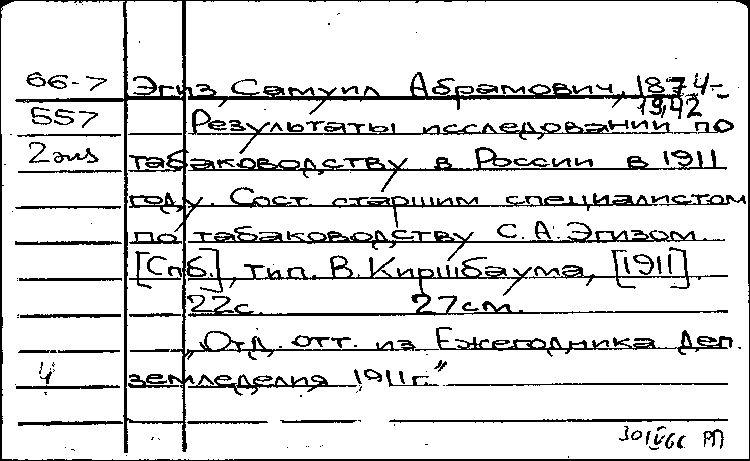 66-7 Эгиз, Самуил Абрамович, 1874-
1942
557 Результаты исследований по
2 экз табаководству в России в 1911
году. Сост. старшим специалистом
по табаководству С.А. Эгизом.
[Спб.], тип. В. Киршбаума, [1911].
22с. 27см.
„Отд. отт. из Ежегодника Деп.
4 земледелия 1911г."
30 IV 66 РП